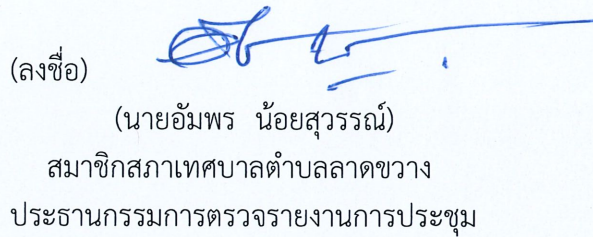 (ลงชื่อ)
(นายอัมพร น้อยสุวรรณ์)
สมาชิกสภาเทศบาลตำบลลาดขวาง
ประธานกรรมการตรวจรายงานการประชุม